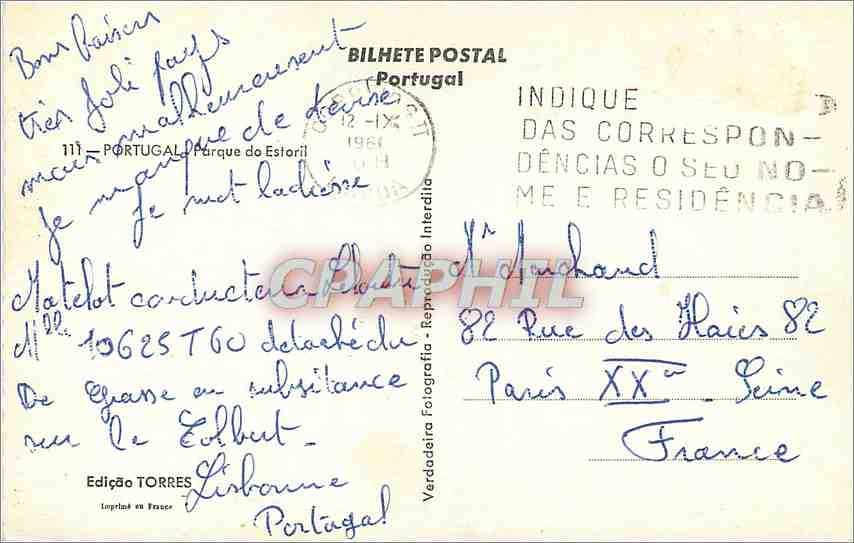 Bons baisers
très joli pays
mais malheureusement
je manque de devise
je met ladrésse
BILHETE POSTAL
Portugal
12-IX
1961
INDIQUE
DAS CORRESPON-
DÊNCIAS O SEU NO-
ME E RESIDÊNCIA
111 — PORTUGAL - Parque do Estoril
Matelot conducteur
Mle 10625T60 détaché du
De Grasse en subsitance
sur le Colbert -
Lisbonne
Portugal
Edição TORRES
Imprimé en France
Verdadeira Fotografia - Reprodução Interdita
CPAPHIL
Mr Marchand
82 Rue des Haies 82
Paris XXe - Seine
France